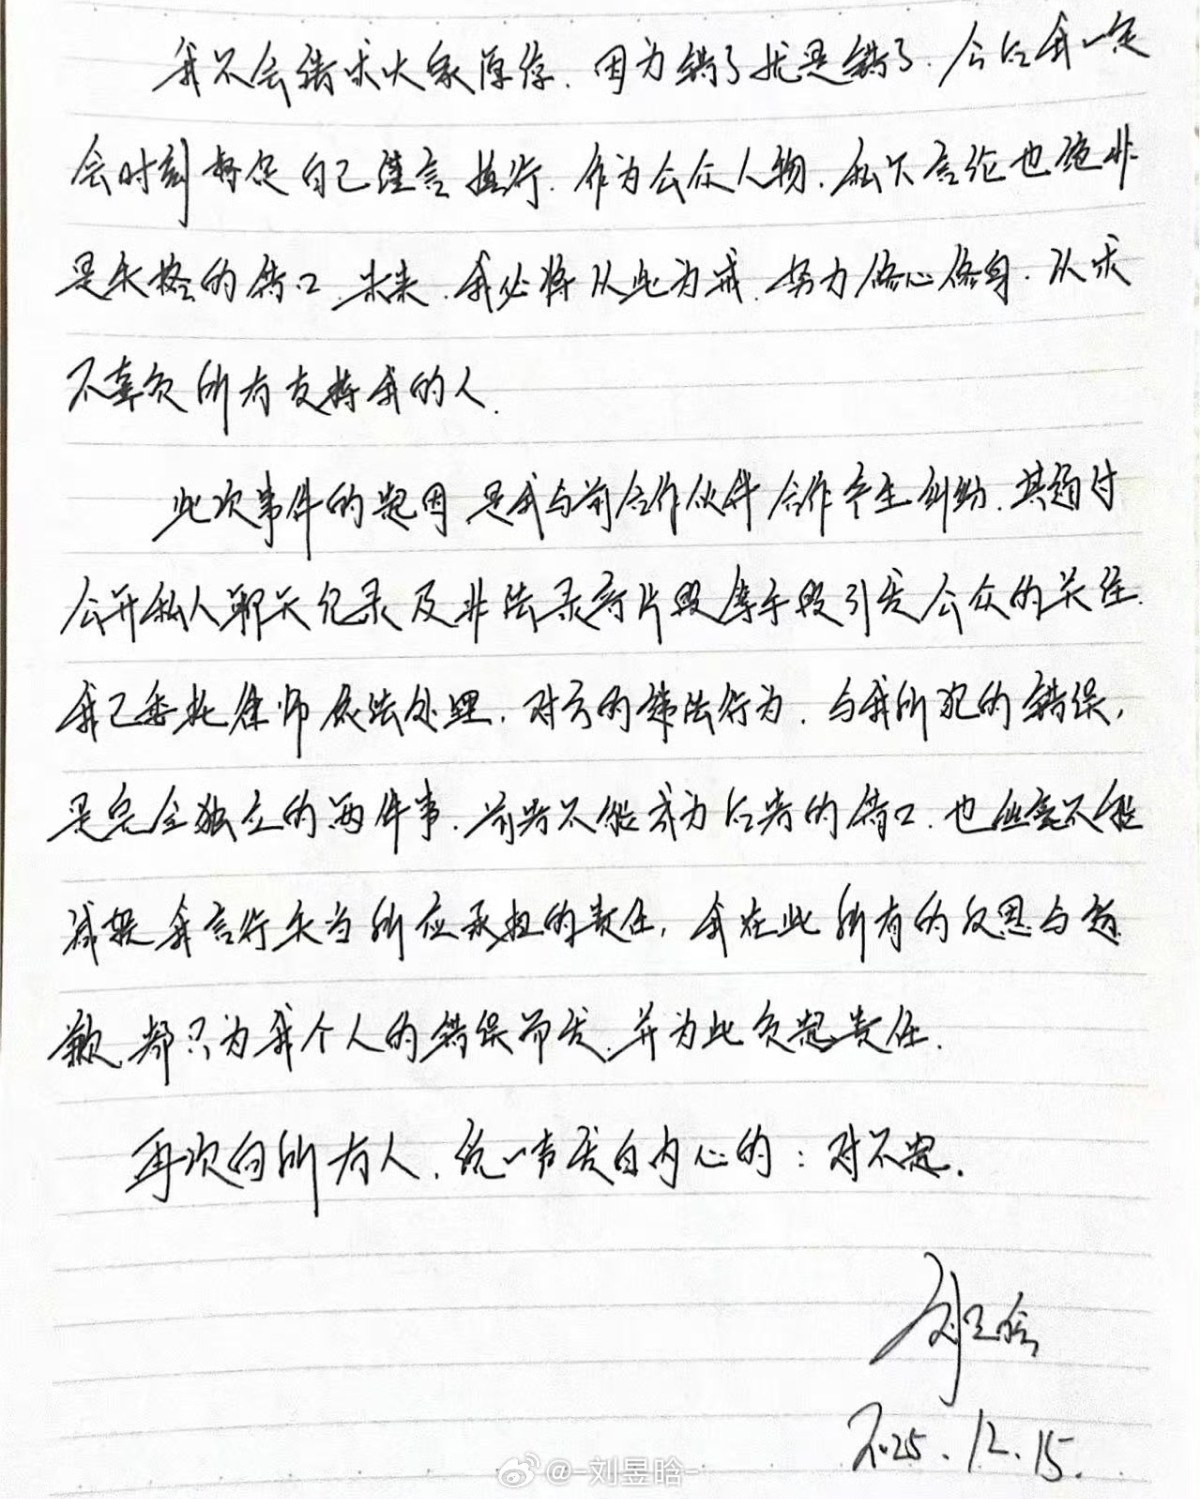 我不会请求大家原谅.因为错了就是错了.今后我一定
会时刻督促自己谨言慎行.作为公众人物.私下言论也绝非
是失格的借口.未来.我必将以此为戒.努力修心修身.以求
不辜负所有支持我的人.
此次事件的起因是我与前合作伙伴合作产生纠纷.其通过
公开私人聊天记录及非法录音片段等手段引发公众的关注.
我已委托律师依法处理.对方的违法行为.与我所犯的错误,
是完全独立的两件事.前者不能成为后者的借口.也丝毫不能
减轻我言行失当所应承担的责任,我在此所有的反思与道
歉.都只为我个人的错误而发.并为此负起责任.
再次向所有人.说一声发自内心的:对不起.
刘昱晗
2025.12.15.
@-刘昱晗-